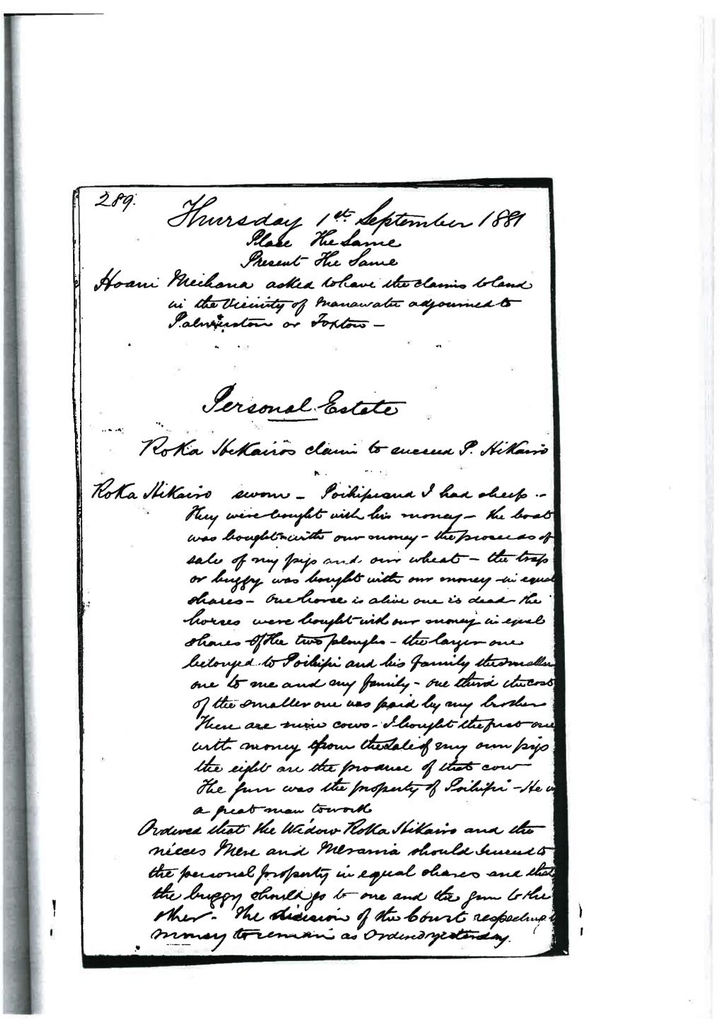 289.
Thursday 1st September 1881
Place The Same
Present The Same
Hoani Meihana asked to have the claims to land
in the Vicinity of Manawatu adjourned to
Palmerston or Foxton –
Personal Estate
Roka Hikairo's claim to succeed P. Hikairo
Roka Hikairo sworn – Poihipi and I had sheep –
They were bought with his money – the boat
was bought with our money – the proceeds of
sale of my pigs and our wheat – the trap
or buggy was bought with our money in equal
shares – One horse is alive one is dead the
horses were bought with our money in equal
shares Of the two ploughs – the larger one
belonged to Poihipi and his family the smaller
one to me and my family – one third the cost
of the smaller one was paid by my brother
There are nine cows – I bought the first one
with money from the sale of my own pigs
the eight are the produce of that cow
The gun was the property of Poihipi – He
a great man to work
Ordered that the Widow Roka Hikairo and the
nieces Mere and Merania should succeed to
the personal property in equal shares and that
the buggy should go to one and the gun to the
other – The decision of the Court respecting
money to remain as Ordered yesterday.